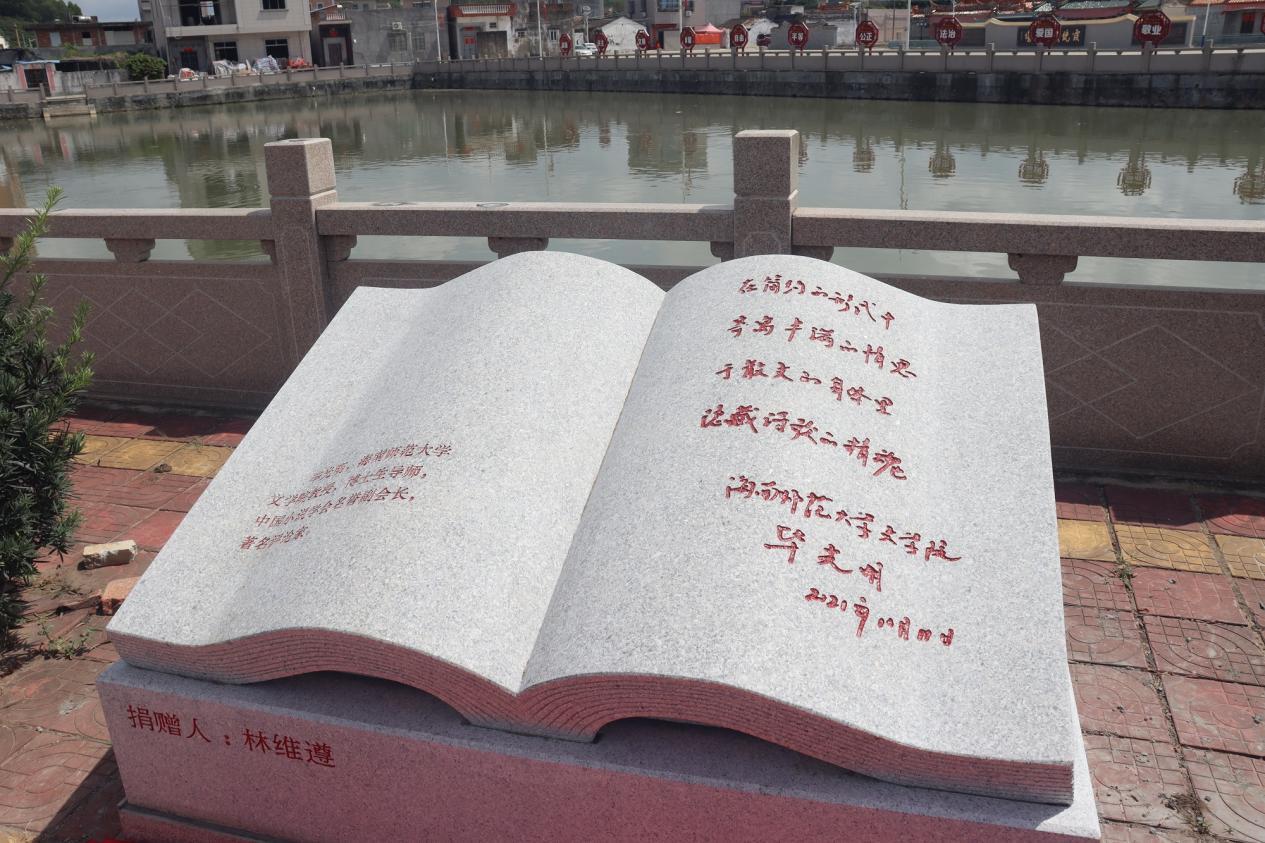 法治
爱国
敬业
平等
公正
在简约的形式中
寄寓丰满的情思
于散文的身体里
隐藏诗歌的精魂
海南师范大学文学院
毕光明
2021年11月11日
毕光明,海南师范大学
文学院教授,博士生导师,
中国小说学会名誉副会长,
著名评论家。
捐赠人:林维遵